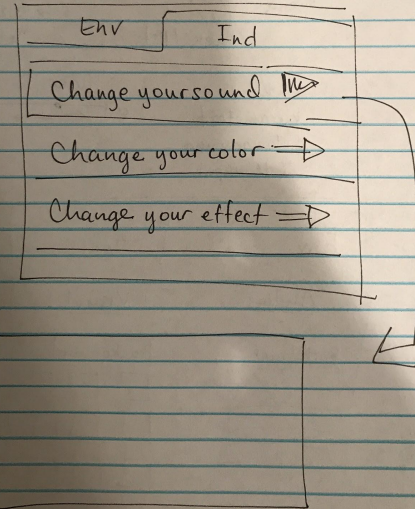 Env
Ind
Change your sound
Change your color
Change your effect